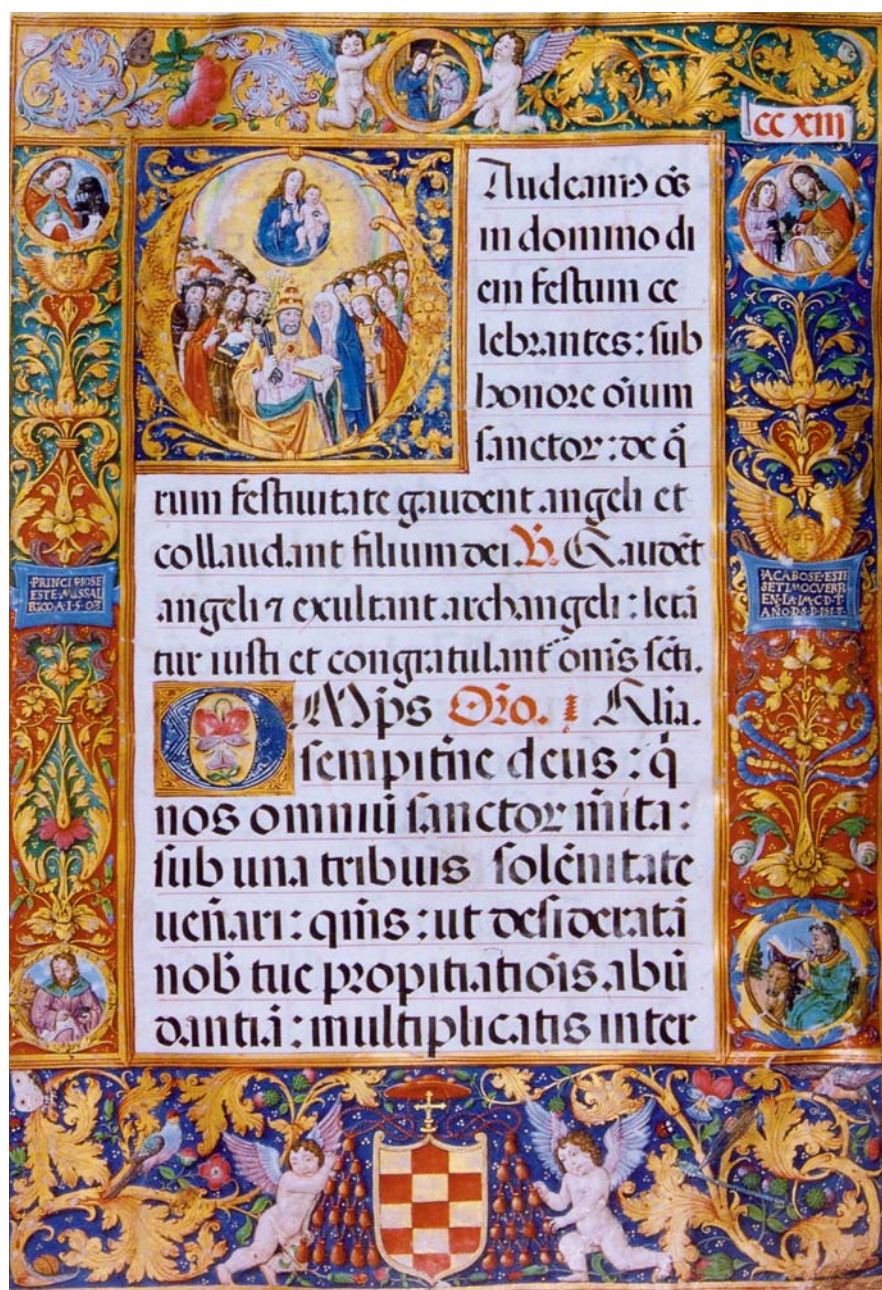 CC XIII
Gaudeamꝰ oēs
in domino di
em festum ce
lebrantes: sub
honore oīum
sanctoꝝ: de q̄
rum festiuitate gaudent angeli et
collaudant filium dei. V. Gaudēt
angeli ⁊ exultant archangeli: letā
tur iusti et congratulant̄ om̄s scti.
OMp̄s Or̄o. Alia.
sempit̄ne deus: q̄
nos omniū sanctoꝝ m̄ita:
sub una tribuis solēnitate
uen̄ari: qm̄s: ut desideratā
nob̄ tue propitiatiōis abū
dantiā: multiplicatis inter
·PRINCIPIOSE
ESTE·MISSAL
A·1·5·03
ACABOSE·ESTE
SETIMO
EN·LA
ANO·D·S·D·